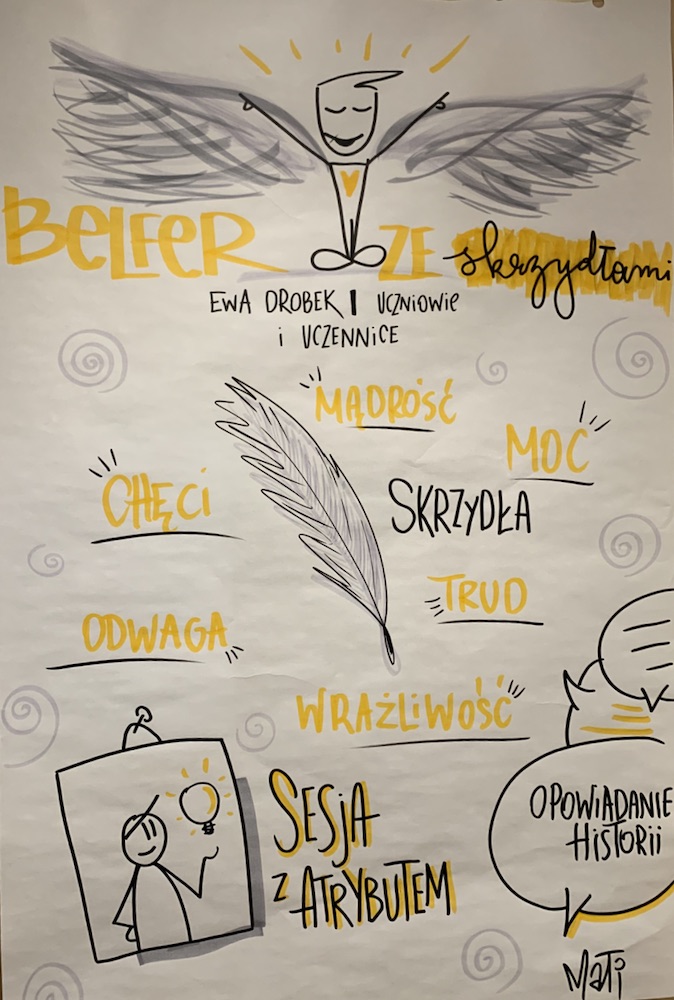 BELFER ZE skrzydłami
EWA DROBEK | UCZNIOWIE
i UCZENNICE
MĄDROŚĆ
MOC
CHĘCI
SKRZYDŁA
TRUD
ODWAGA
WRAŻLIWOŚĆ
SESJA
Z ATRYBUTEM
OPOWIADANIE
HISTORII
Mati